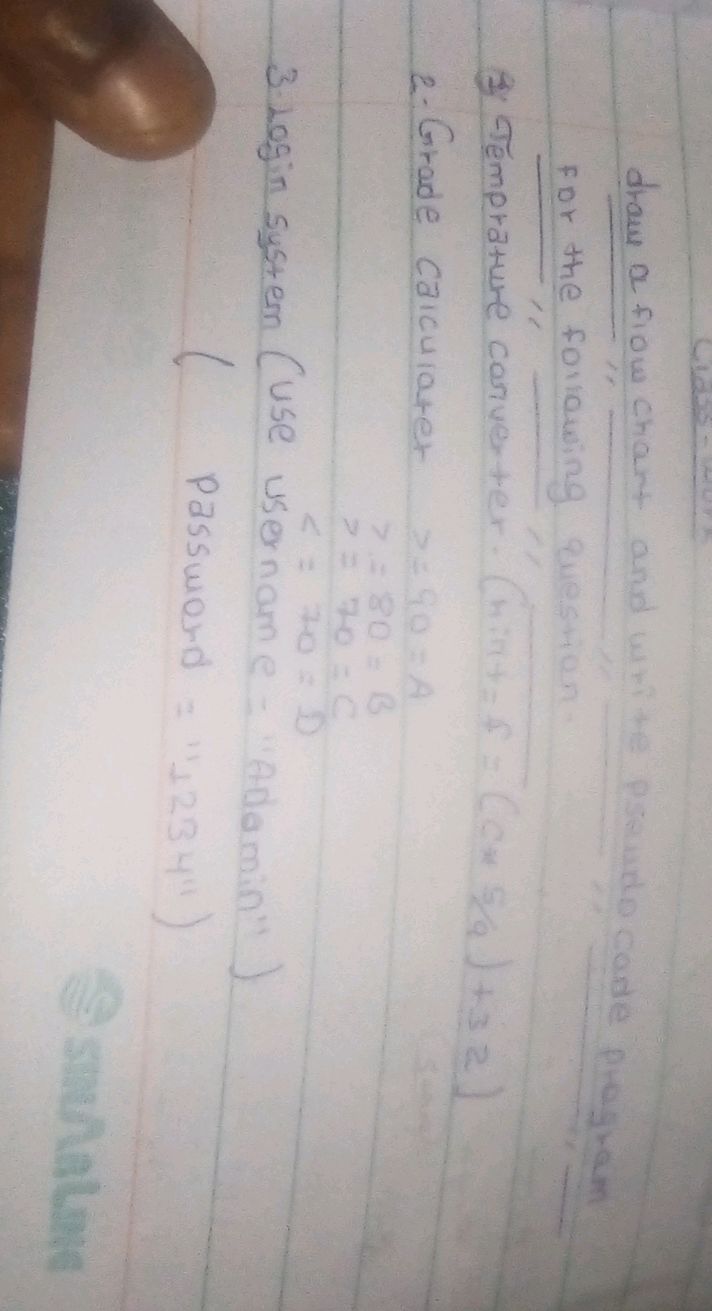 Class-work
draw a flow chart and write pseudo code program
for the following question.
1) Temprature converter. (hint = f = (c* 5/9) + 32)
2. Grade calculater >= 90 = A
>= 80 = B
>= 70 = C
<= 70 = D
3. Login system (use username = "Adamin")
( password = "1234")
SINARLINE